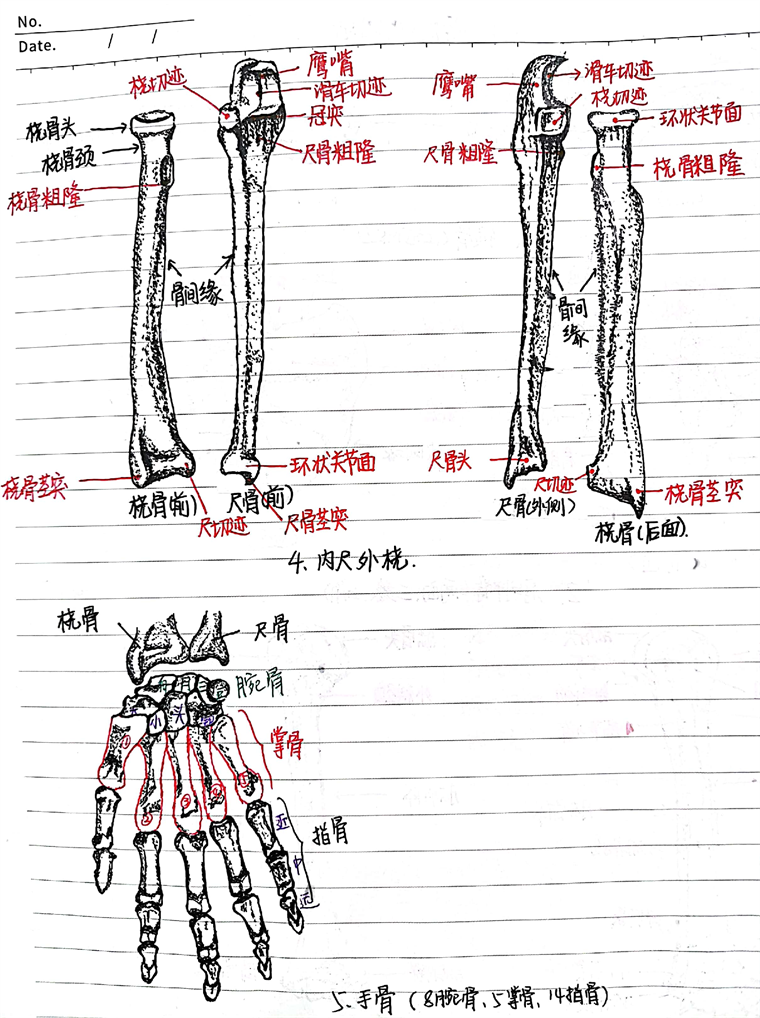 No.
Date. / /
桡切迹
鹰嘴
滑车切迹
冠突
尺骨粗隆
桡骨头
桡骨颈
桡骨粗隆
骨间缘
桡骨茎突
桡骨(前)
尺切迹
尺骨(前)
环状关节面
尺骨茎突
鹰嘴
滑车切迹
桡切迹
环状关节面
尺骨粗隆
桡骨粗隆
骨间
缘
尺骨头
尺切迹
尺骨(外侧)
桡骨茎突
桡骨(后面).
4、内尺外桡.
桡骨
尺骨
舟月三豆
腕骨
大小头钩
掌骨
① ② ③ ④ ⑤
指骨
近
中
远
5、手骨(8腕骨、5掌骨、14指骨)